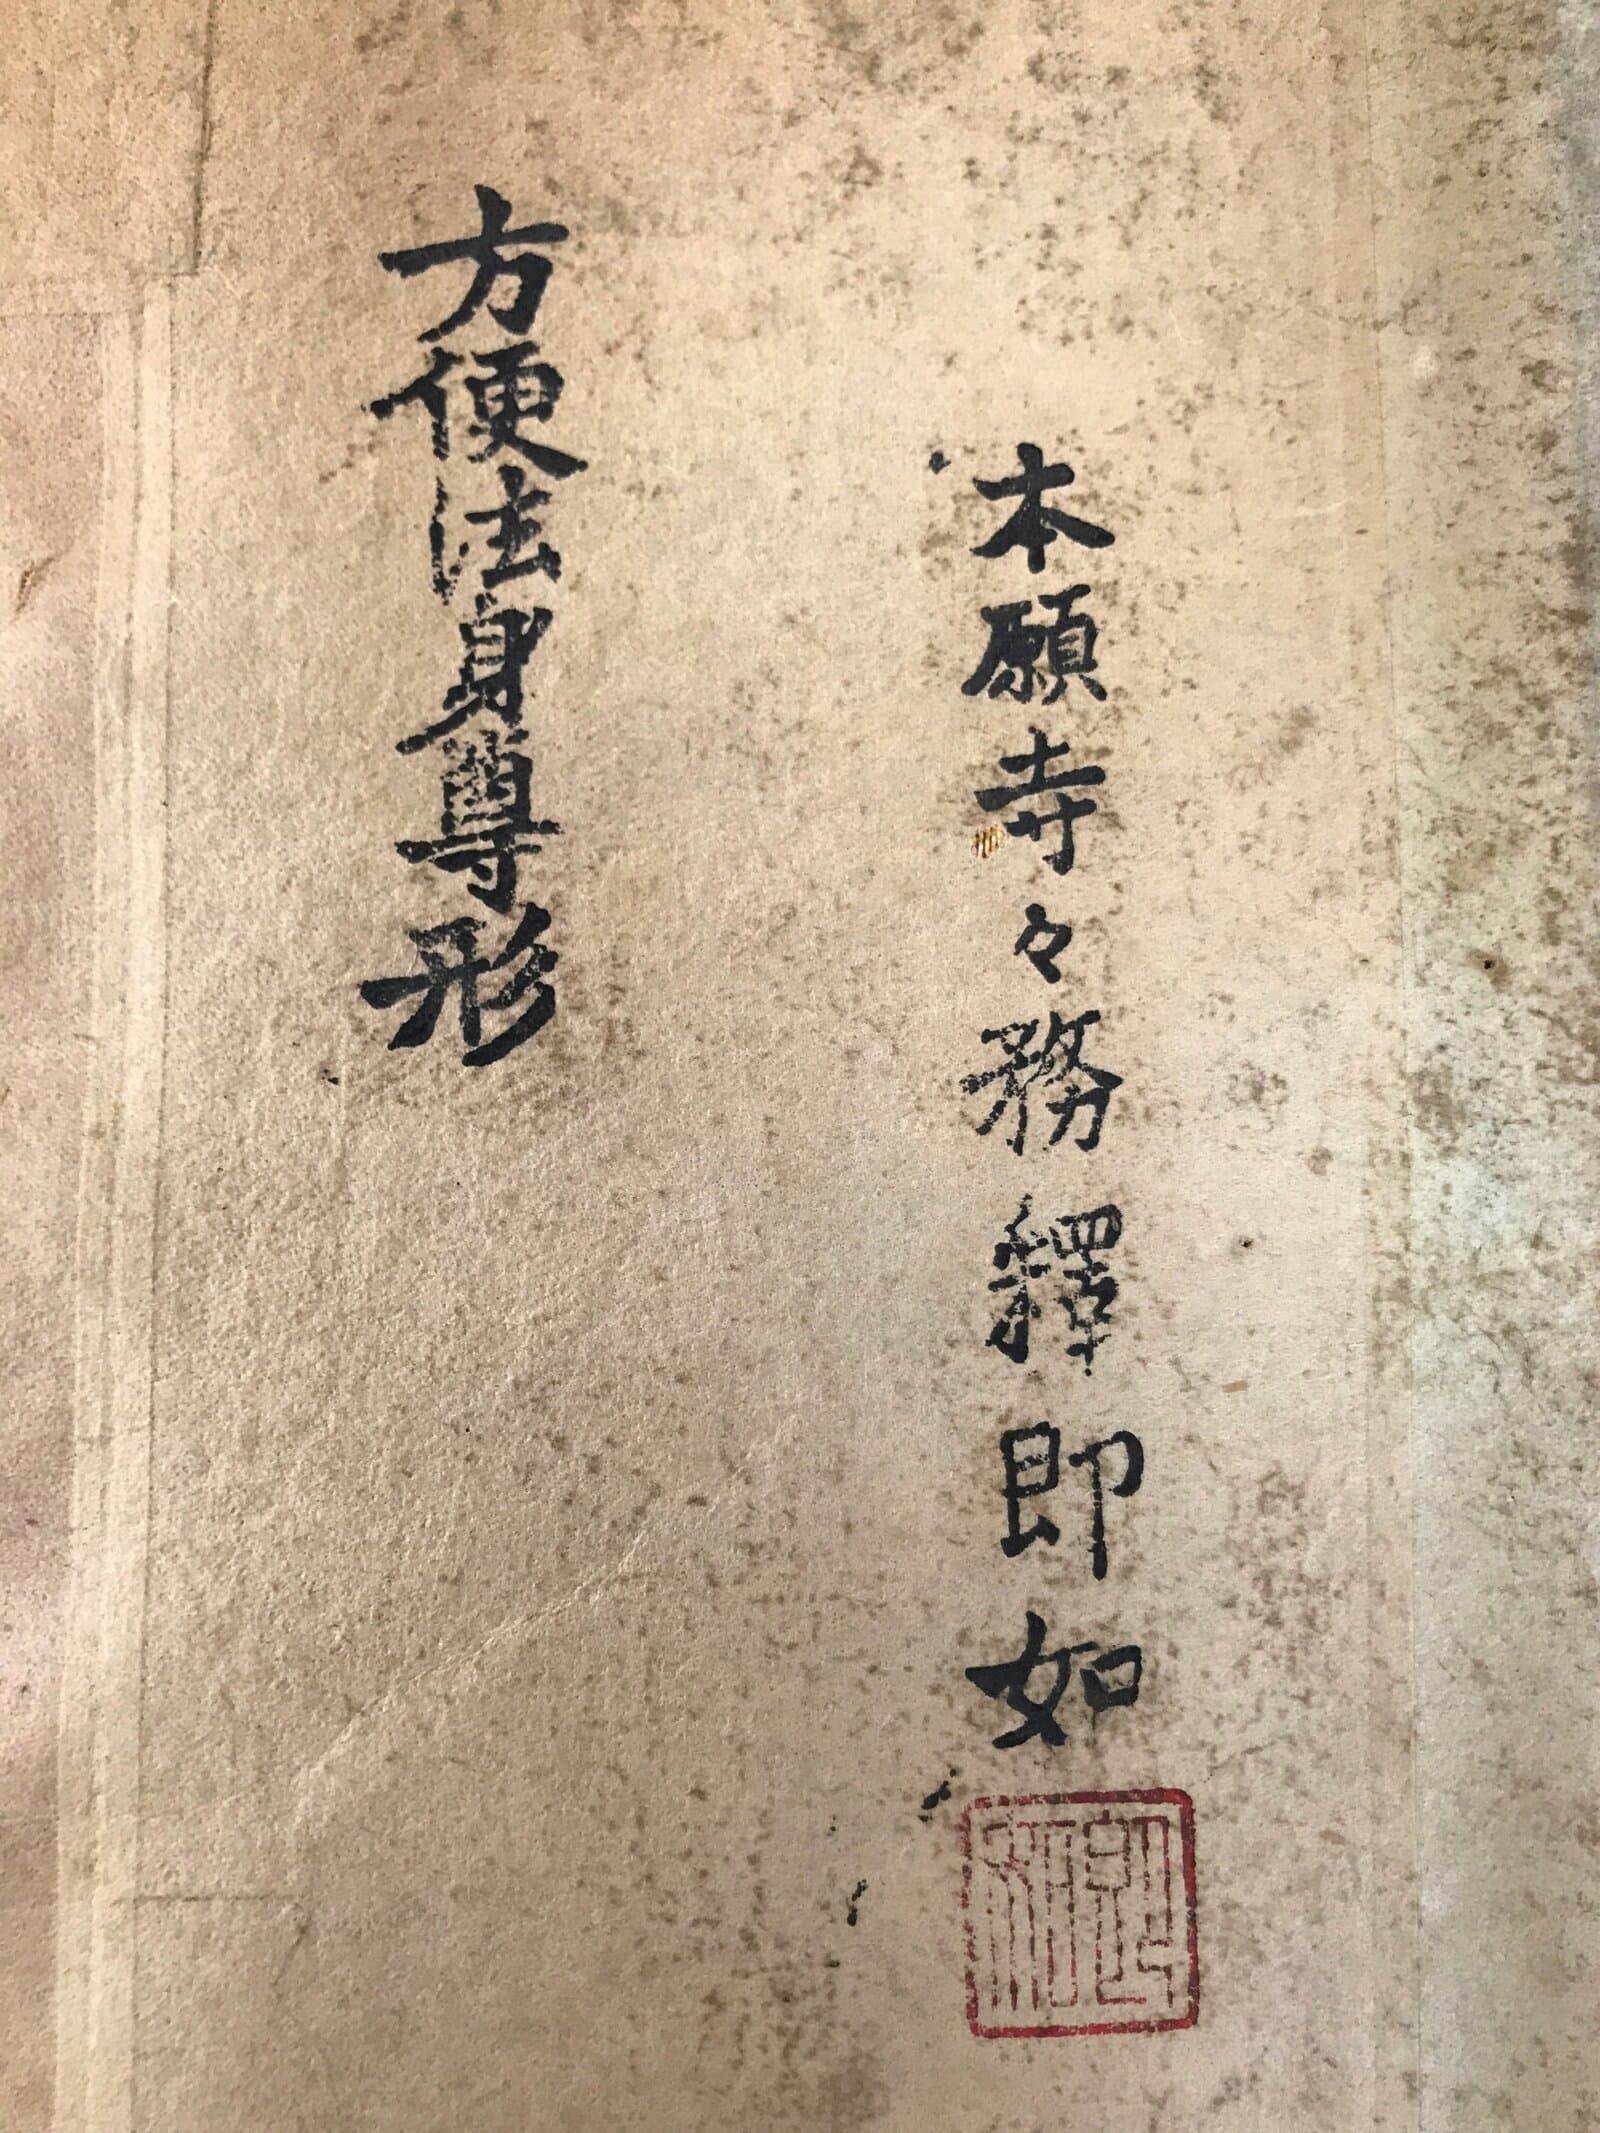 本願寺々務釋即如
方便法身尊形
即如